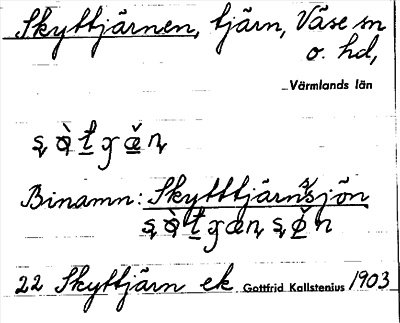 Skyttjärnen, tjärn, Väse sn
o. hd,
Värmlands län
Binamn: Skyttjärnsjön
22 Skyttjärn ek Gottfrid Kallstenius 1903